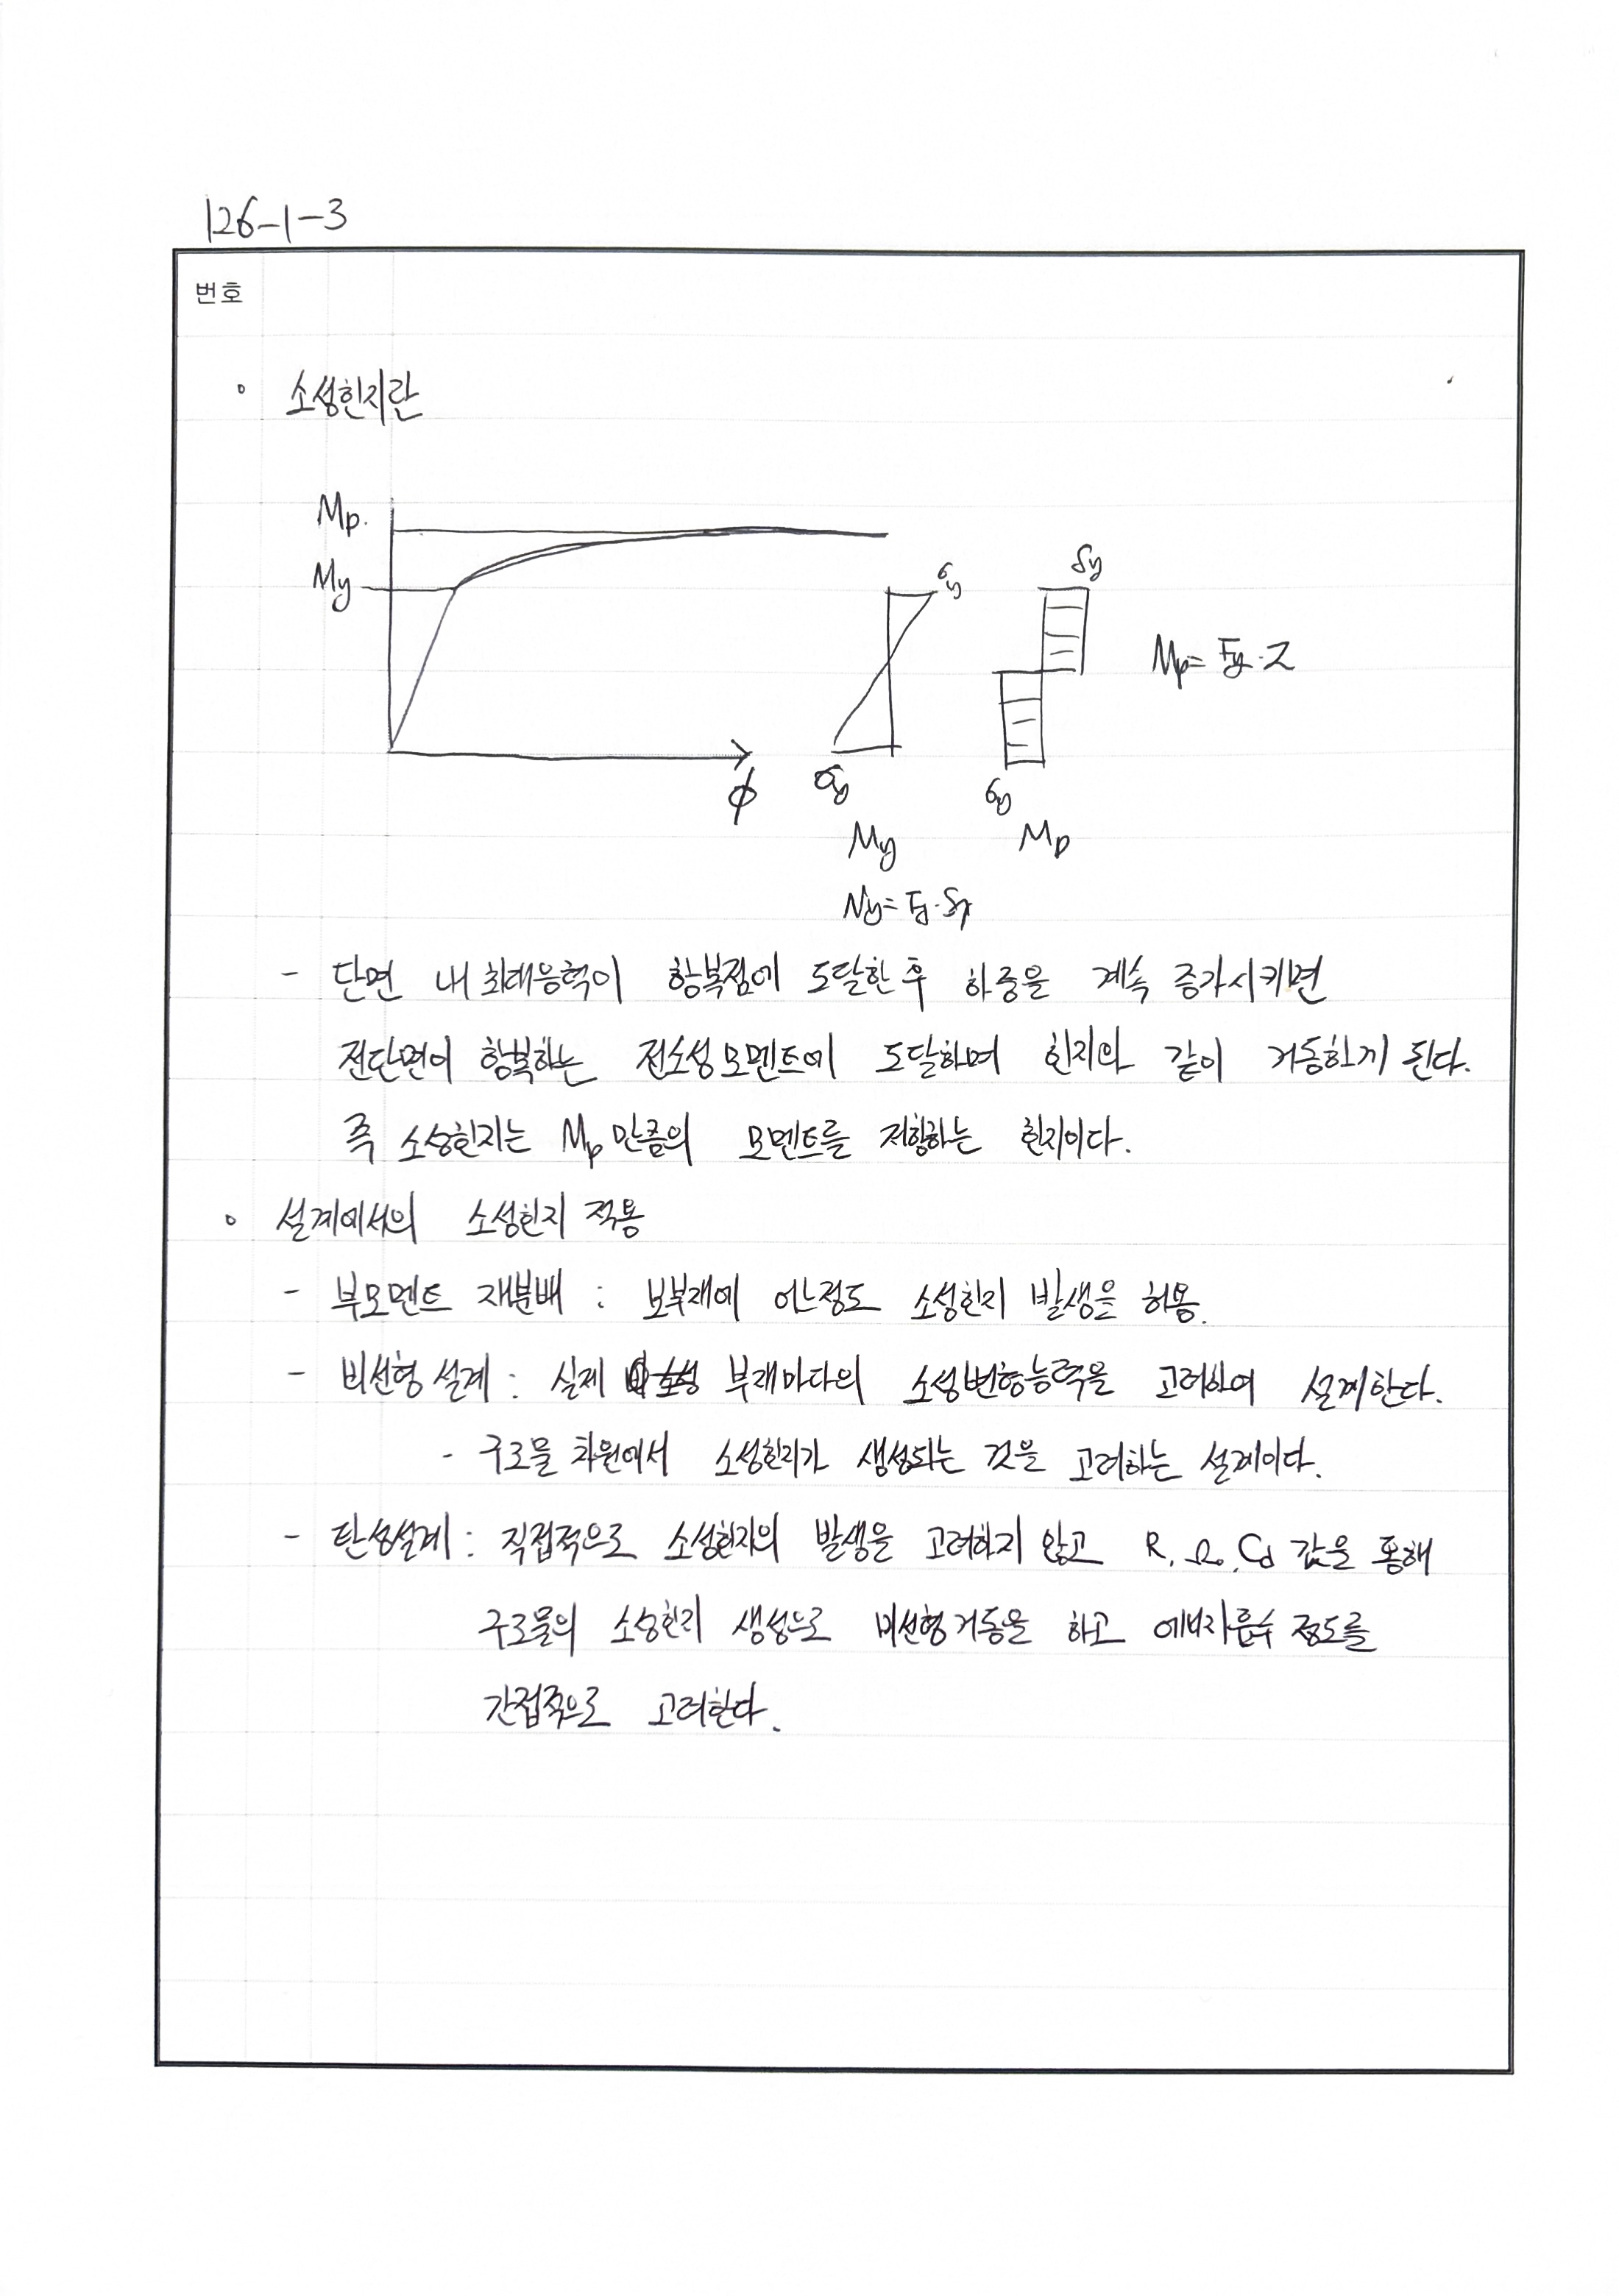 126-1-3
번호
◦ 소성힌지란
Mp.
My
ϕ
σy
σy
My
My = Fy·Sx
σy
σy
Mp
Mp = Fy·Z
- 단면 내 최대응력이 항복점에 도달한 후 하중을 계속 증가시키면
전단면이 항복하는 전소성모멘트에 도달하며 힌지와 같이 거동하게 된다.
즉 소성힌지는 Mp만큼의 모멘트를 저항하는 힌지이다.
◦ 설계에서의 소성힌지 적용
- 부모멘트 재분배 : 보부재에 어느정도 소성힌지 발생을 허용.
- 비선형 설계 : 실제 부재마다의 소성변형능력을 고려하여 설계한다.
- 구조물 차원에서 소성힌지가 생성되는 것을 고려하는 설계이다.
- 탄성설계 : 직접적으로 소성힌지의 발생을 고려하지 않고 R, Ω₀, Cd 값을 통해
구조물의 소성힌지 생성으로 비선형거동을 하고 에너지흡수 정도를
간접적으로 고려한다.